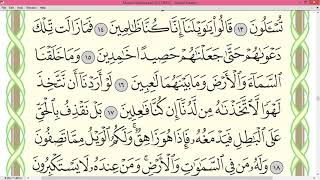 تُسْـَٔلُونَ ١٣ قَالُوا۟ يَـٰوَيْلَنَآ إِنَّا كُنَّا ظَـٰلِمِينَ ١٤ فَمَا زَالَت تِّلْكَ
دَعْوَىٰهُمْ حَتَّىٰ جَعَلْنَـٰهُمْ حَصِيدًا خَـٰمِدِينَ ١٥ وَمَا خَلَقْنَا
ٱلسَّمَآءَ وَٱلْأَرْضَ وَمَا بَيْنَهُمَا لَـٰعِبِينَ ١٦ لَوْ أَرَدْنَآ أَن نَّتَّخِذَ
لَهْوًا لَّٱتَّخَذْنَـٰهُ مِن لَّدُنَّآ إِن كُنَّا فَـٰعِلِينَ ١٧ بَلْ نَقْذِفُ بِٱلْحَقِّ
عَلَى ٱلْبَـٰطِلِ فَيَدْمَغُهُۥ فَإِذَا هُوَ زَاهِقٌ ۚ وَلَكُمُ ٱلْوَيْلُ مِمَّا تَصِفُونَ
١٨ وَلَهُۥ مَن فِى ٱلسَّمَـٰوَٰتِ وَٱلْأَرْضِ ۚ وَمَنْ عِندَهُۥ لَا يَسْتَكْبِرُونَ